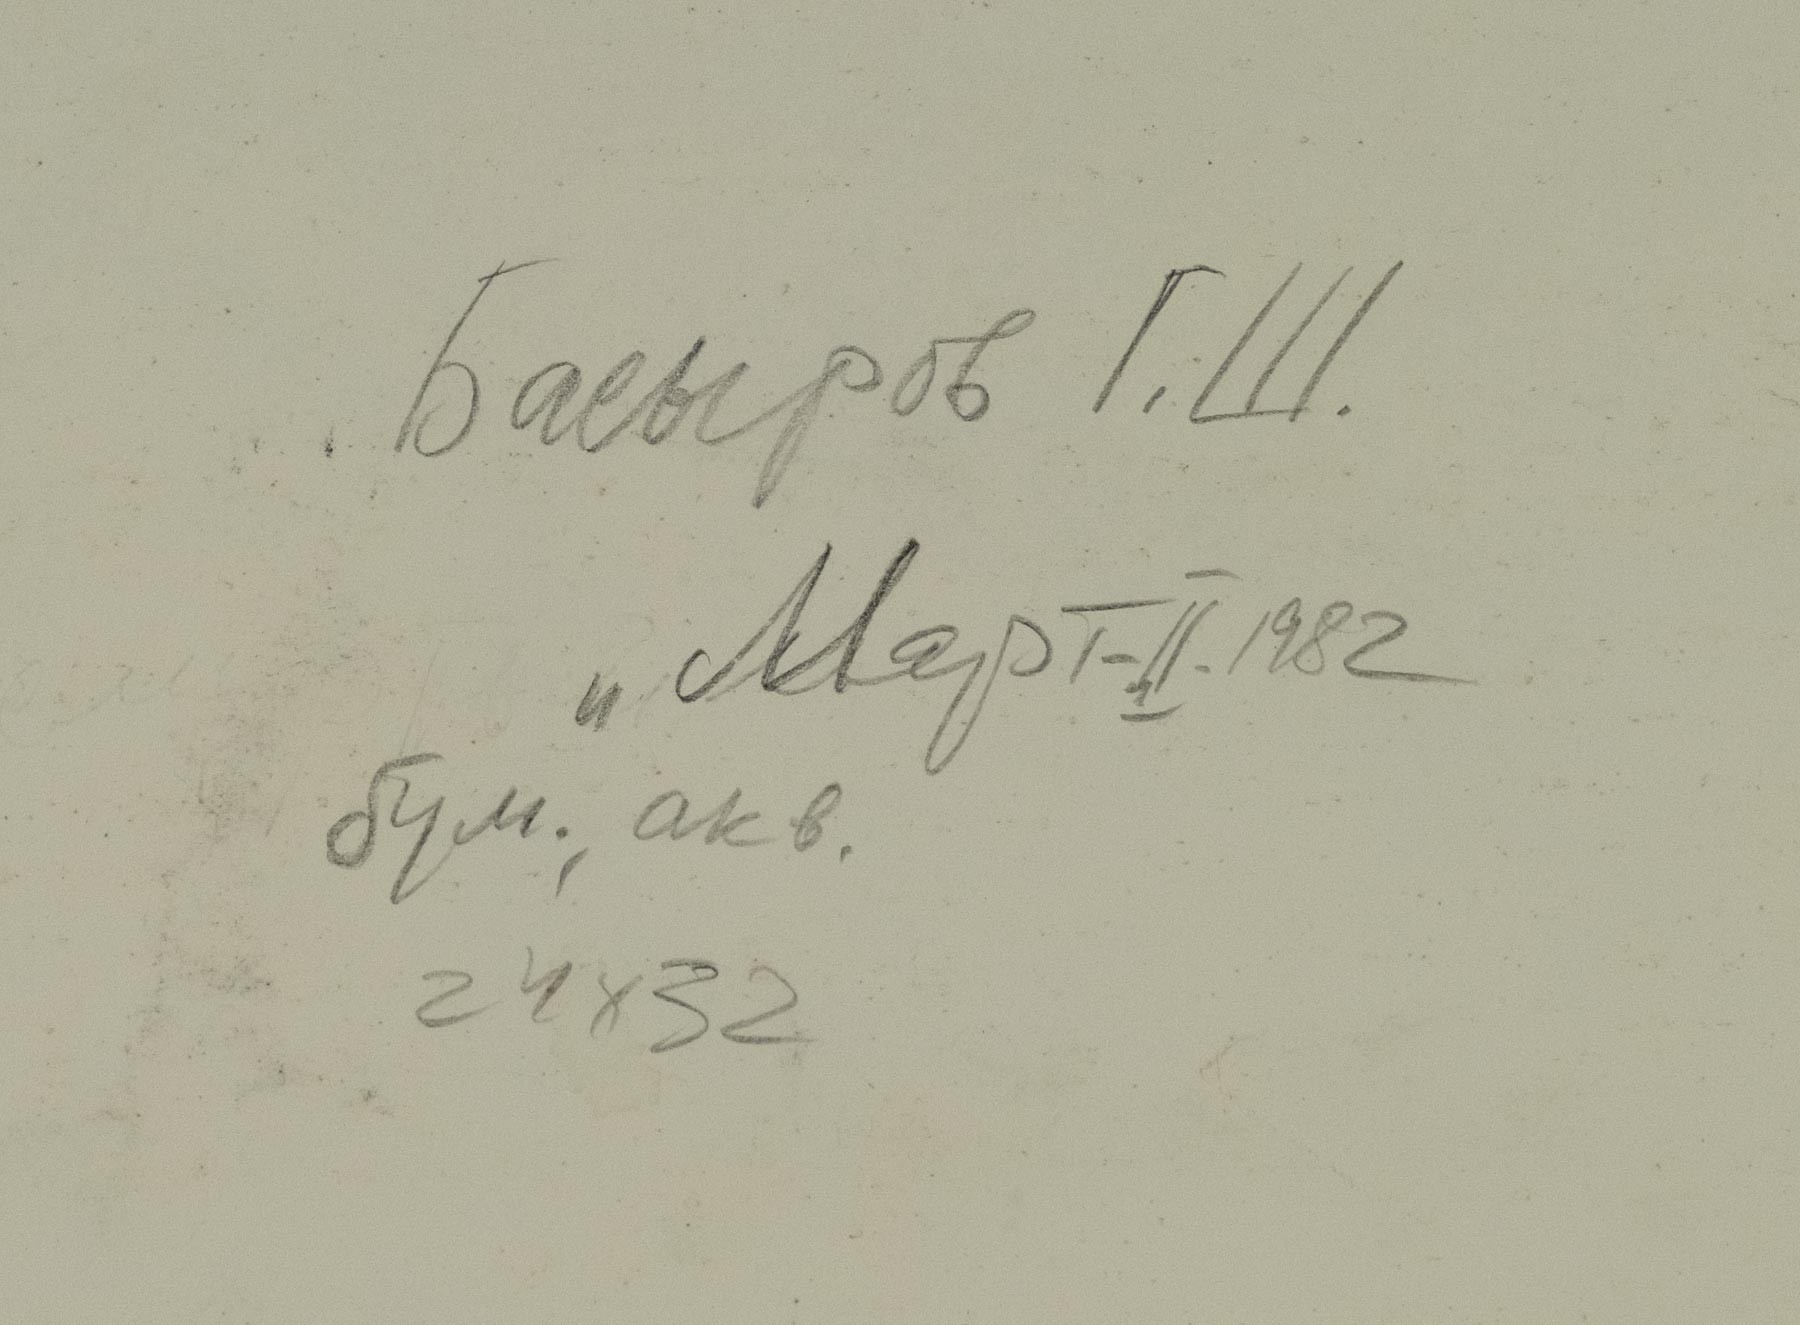 Басыров Г.Ш.
„Март-II. 1982
бум., акв.
24х32